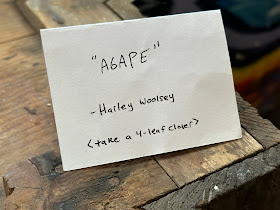 "AGAPE"
- Hailey Woolsey
<take a 4-leaf clover>